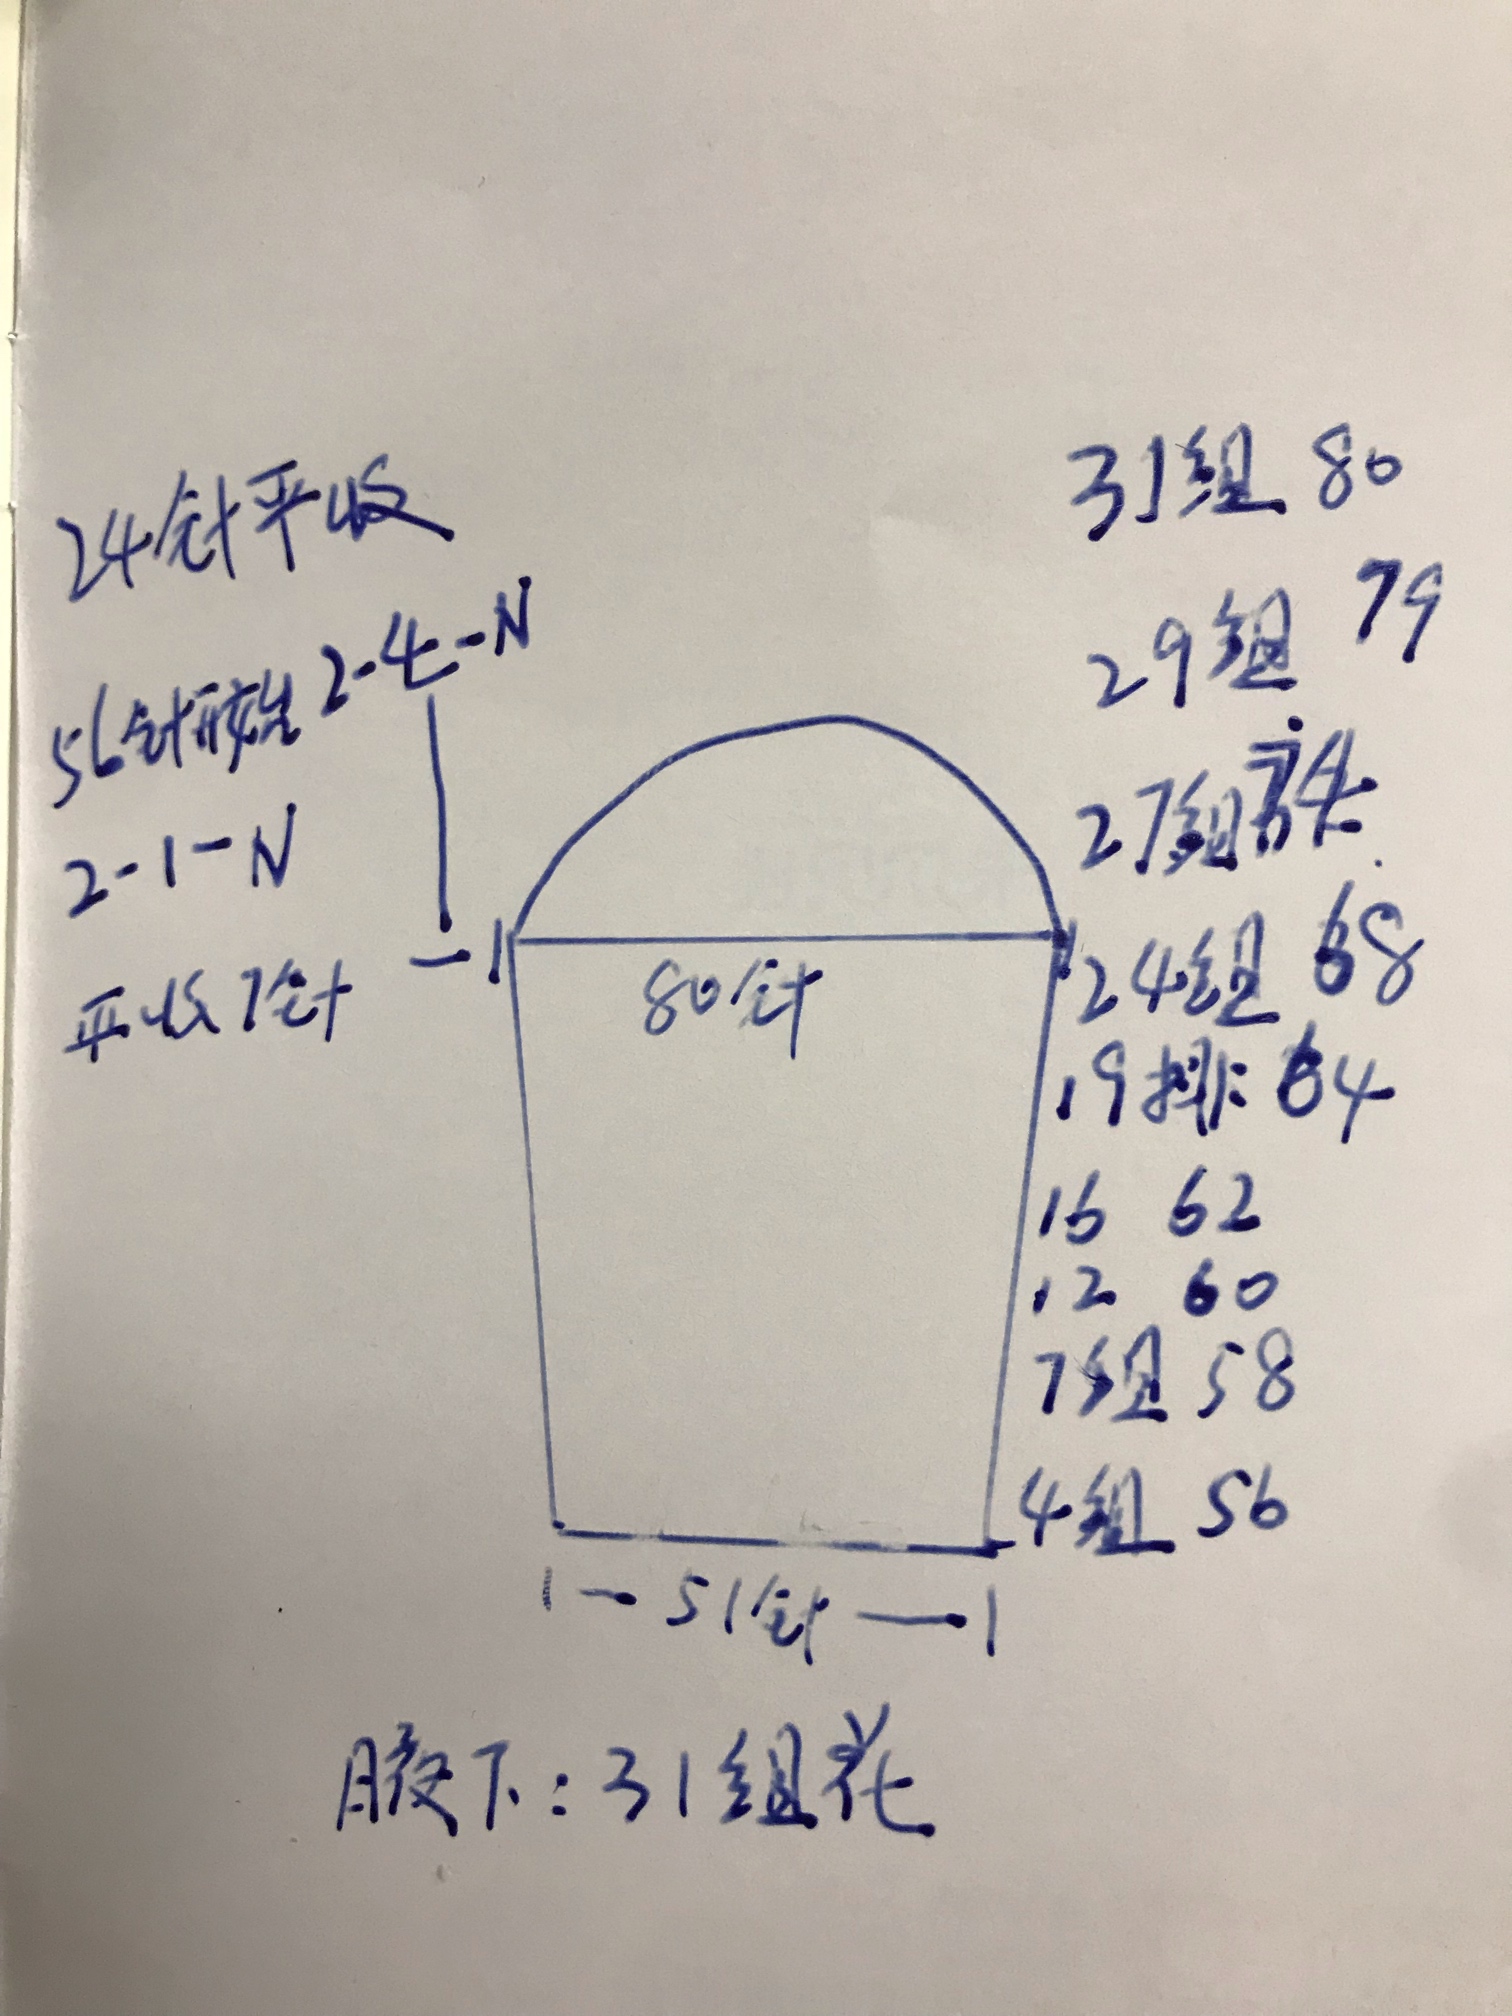 24针平收
56针开始2-4-N
2-1-N
平收7针
31组 80
29组 79
27组 74
24组 68
19排 64
16 62
12 60
7组 58
4组 56
80针
51针
腋下:31组花